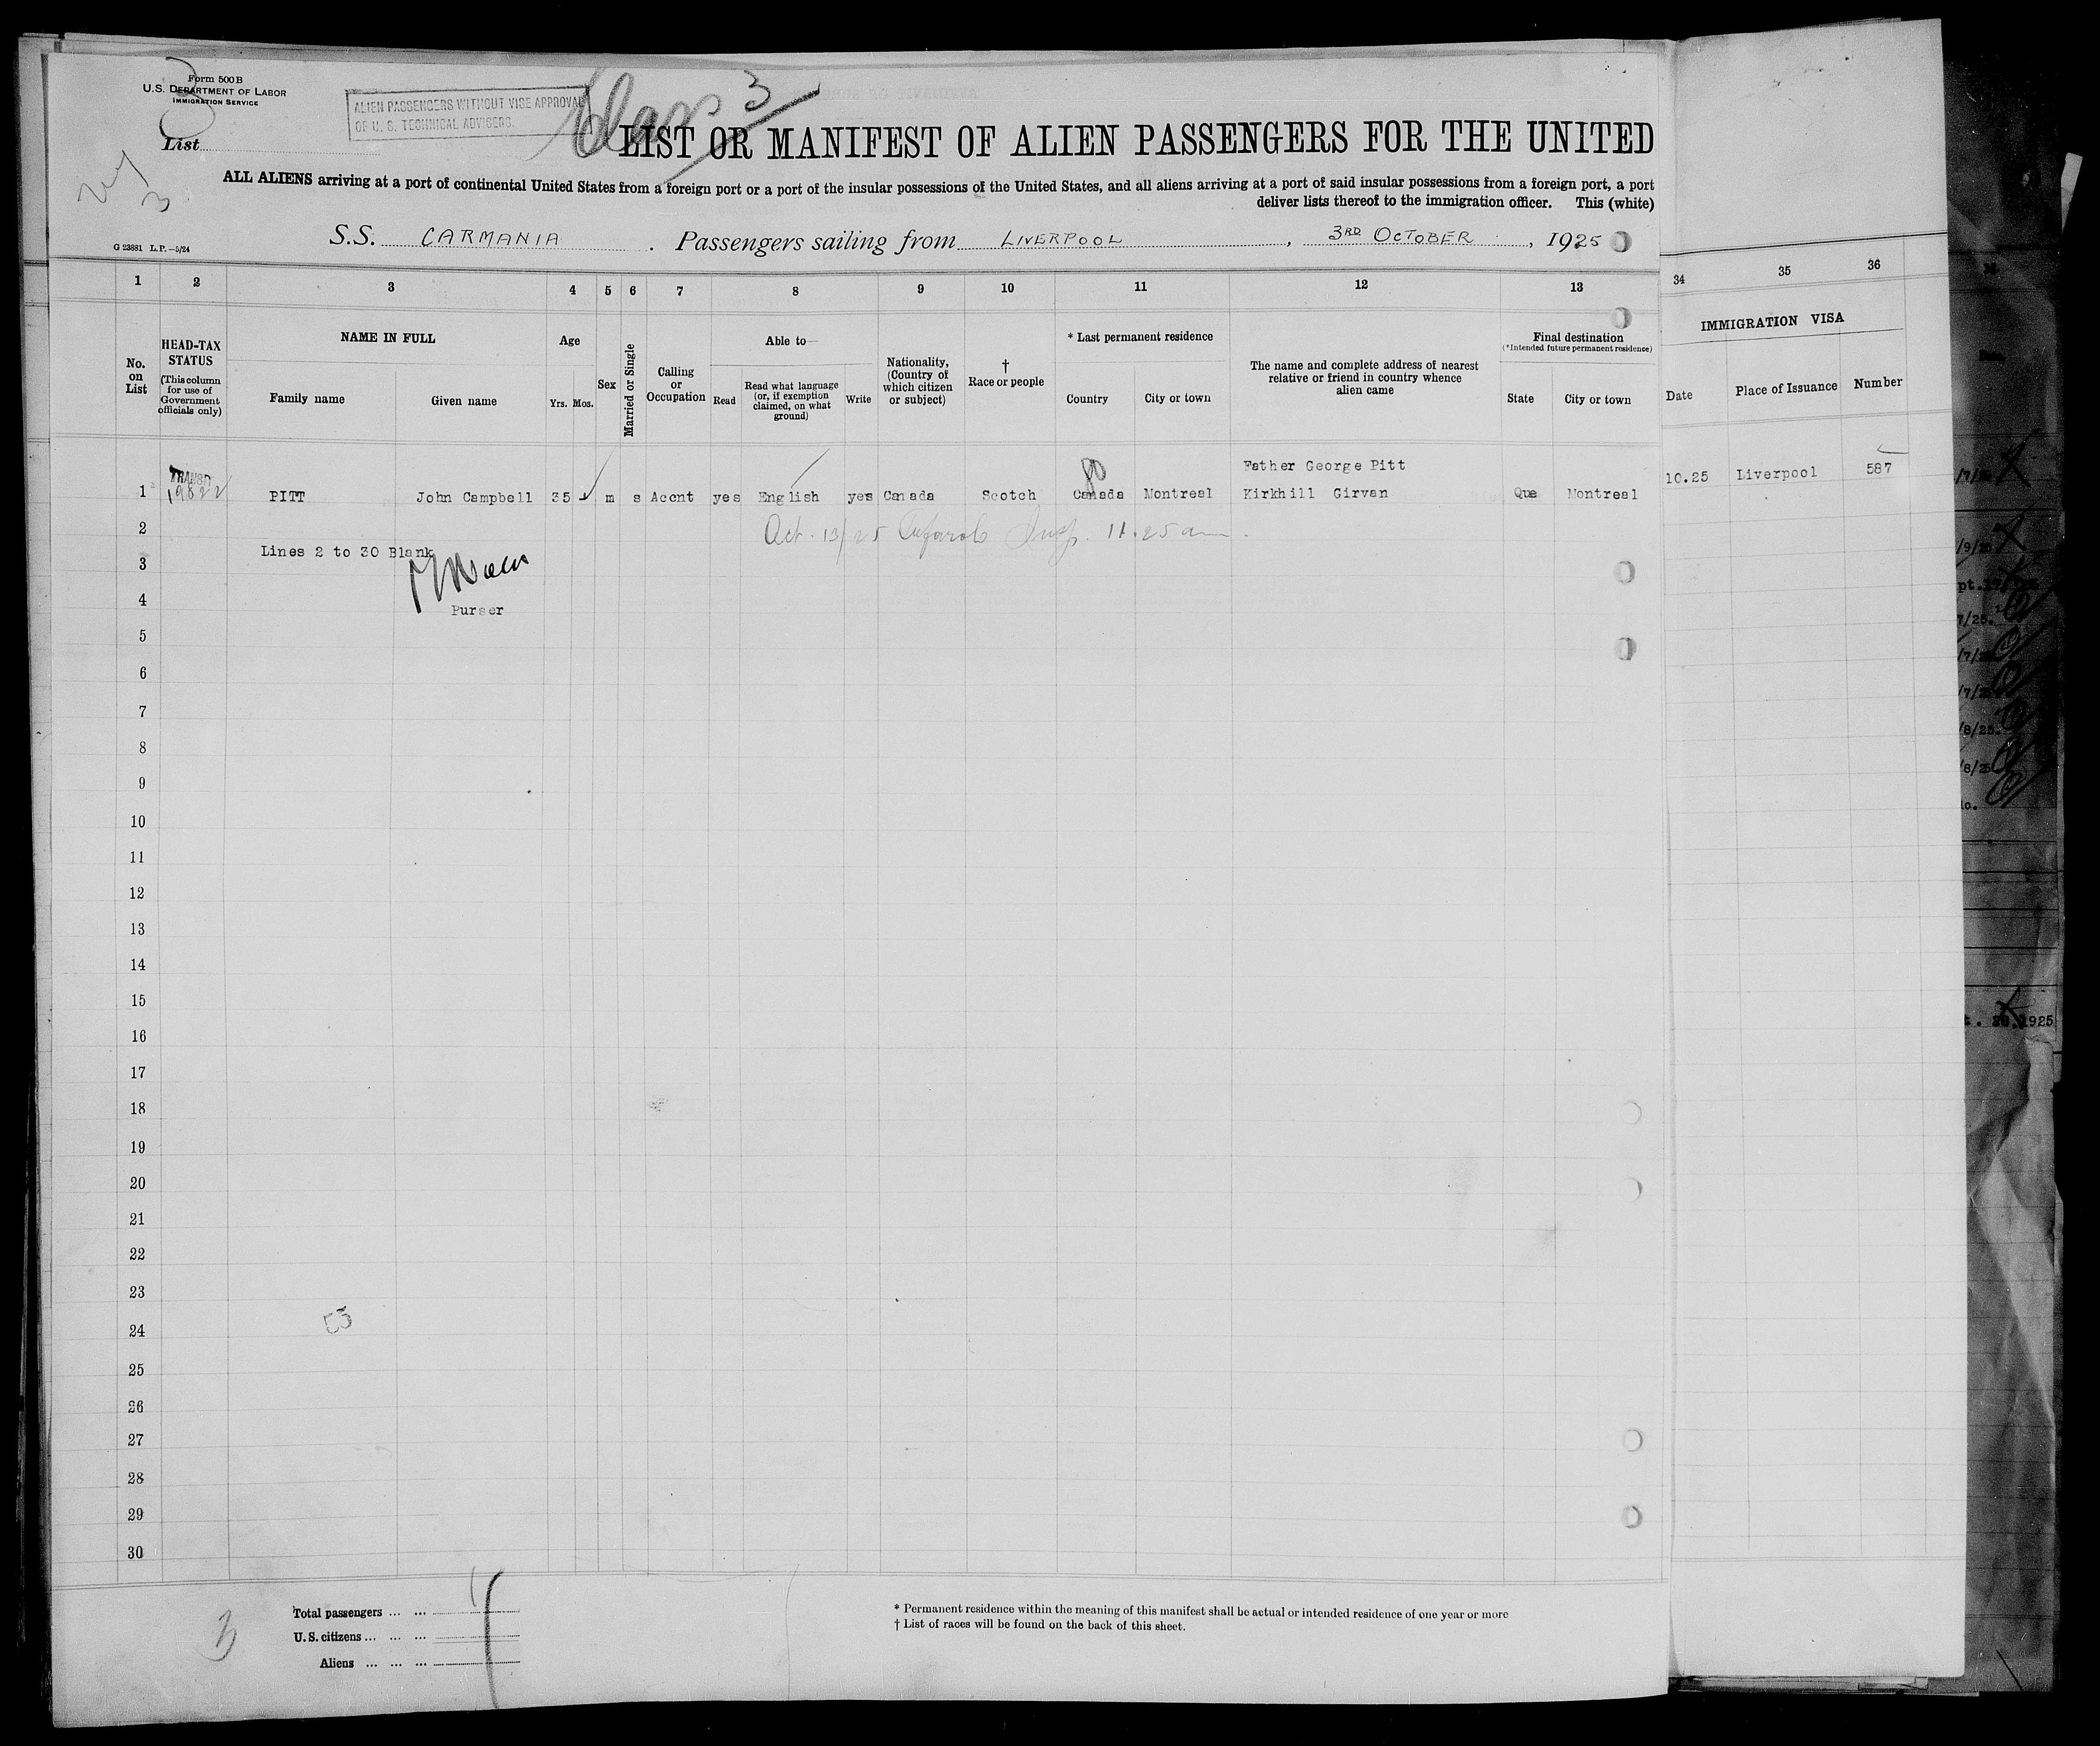 Form 500B
U.S. DEPARTMENT OF LABOR
IMMIGRATION SERVICE
List
ALIEN PASSENGERS WITHOUT VISE APPROVAL
OF U. S. TECHNICAL ADVISERS.
Class 3
LIST OR MANIFEST OF ALIEN PASSENGERS FOR THE UNITED
ALL ALIENS arriving at a port of continental United States from a foreign port or a port of the insular possessions of the United States, and all aliens arriving at a port of said insular possessions from a foreign port, a port
deliver lists thereof to the immigration officer. This (white)
3
G 23881 L.P.—5/24
S.S. CARMANIA . Passengers sailing from LIVERPOOL , 3RD OCTOBER , 1925
1 2 3 4 5 6 7 8 9 10 11 12 13 34 35 36
No. on List
HEAD-TAX STATUS
(This column for use of Government officials only)
NAME IN FULL
Family name Given name
Age
Yrs. Mos.
Sex
Married or Single
Calling or Occupation
Able to—
Read
Read what language (or, if exemption claimed, on what ground)
Write
Nationality, (Country of which citizen or subject)
† Race or people
* Last permanent residence
Country City or town
The name and complete address of nearest relative or friend in country whence alien came
Final destination
(*Intended future permanent residence)
State City or town
IMMIGRATION VISA
Date Place of Issuance Number
Father George Pitt
TRANSIT
1 PITT John Campbell 35 m s Accnt yes English yes Canada Scotch Canada Montreal Kirkhill Girvan Que Montreal 10.25 Liverpool 587
2 Oct. 13/25 Insp. 11.25 am
Lines 2 to 30 Blank
3
4
Purser
5
6
7
8
9
10
11
12
13
14
15
16
17
18
19
20
21
22
23
24
25
26
27
28
29
30
Total passengers ... ... 1
U.S. citizens ... ... ...
Aliens ... ... ...
3
* Permanent residence within the meaning of this manifest shall be actual or intended residence of one year or more
† List of races will be found on the back of this sheet.